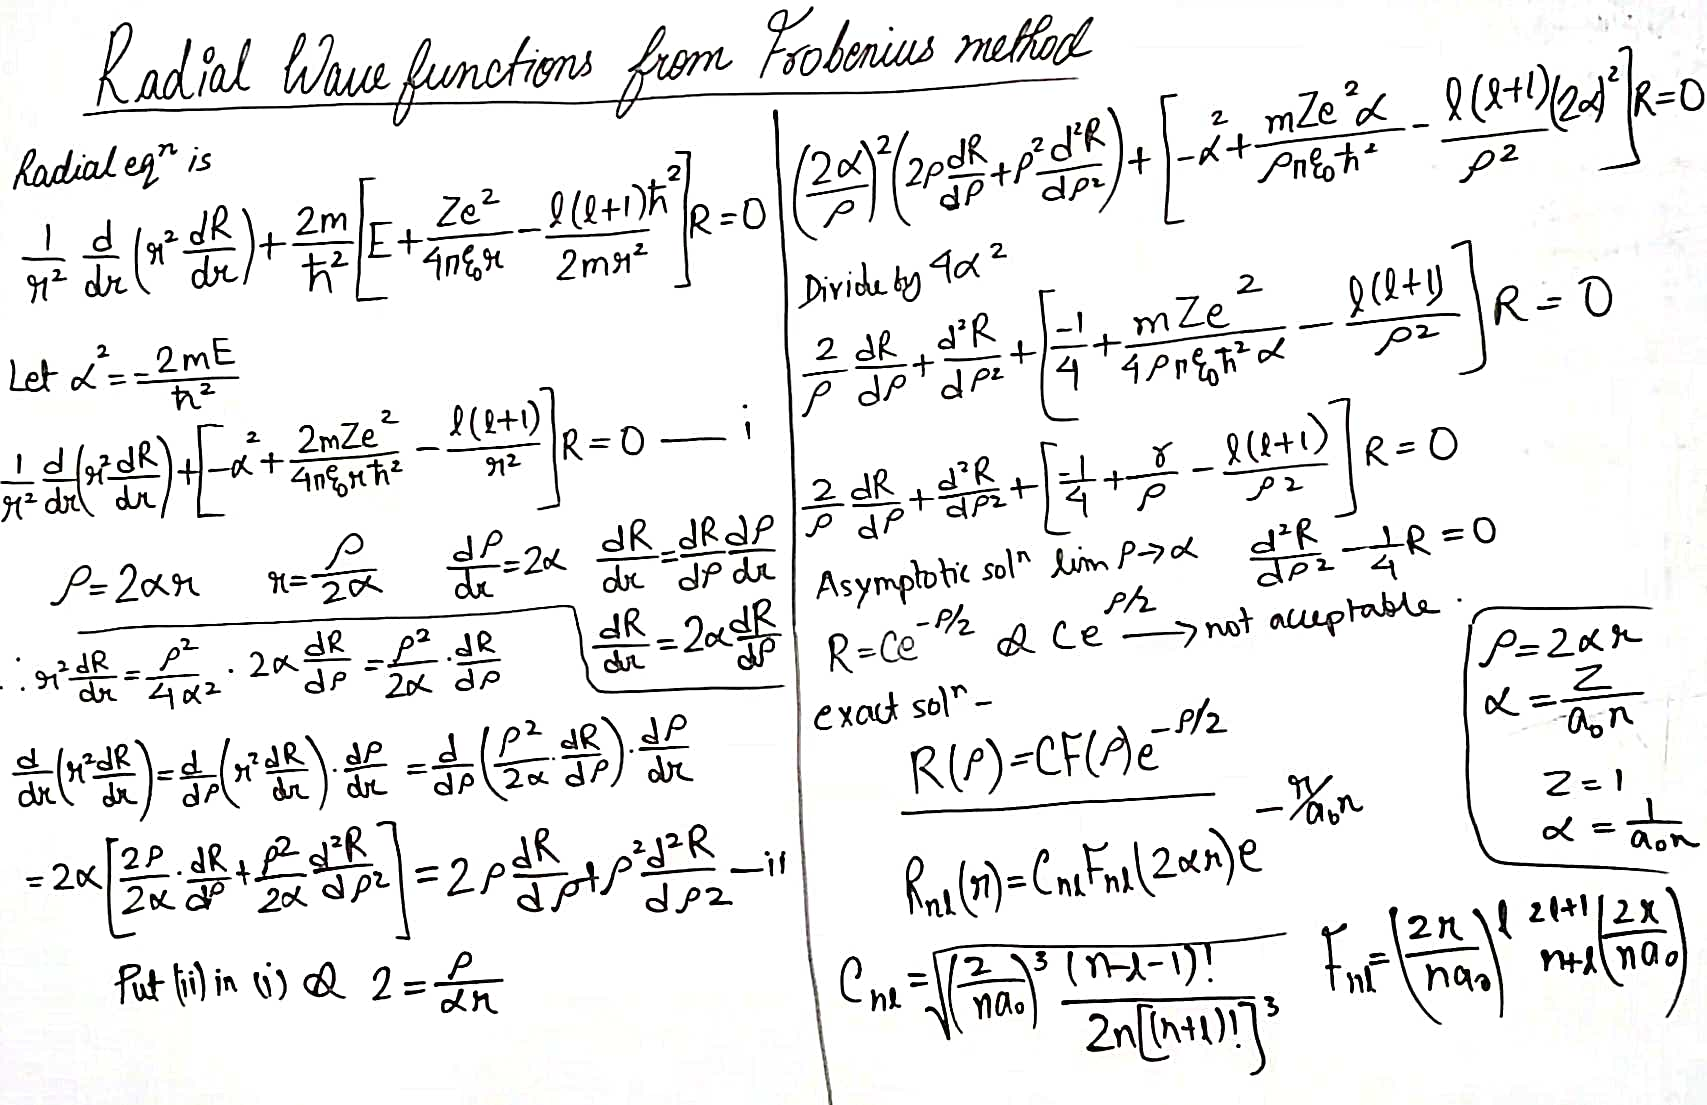 Radial Wave functions from Frobenius method
Radial eqⁿ is
1/r² d/dr (r² dR/dr) + 2m/ħ² [E + Ze²/4πε₀r − l(l+1)ħ²/2mr²] R = 0
Let α² = −2mE/ħ²
1/r² d/dr (r² dR/dr) + [−α² + 2mZe²/4πε₀rħ² − l(l+1)/r²] R = 0 — i
ρ = 2αr r = ρ/2α dρ/dr = 2α dR/dr = dR/dρ dρ/dr
dR/dr = 2α dR/dρ
∴ r² dR/dr = ρ²/4α² · 2α dR/dρ = ρ²/2α · dR/dρ
d/dr (r² dR/dr) = d/dρ (r² dR/dr) · dρ/dr = d/dρ (ρ²/2α · dR/dρ) · dρ/dr
= 2α [2ρ/2α · dR/dρ + ρ²/2α d²R/dρ²] = 2ρ dR/dρ + ρ² d²R/dρ2 — ii
Put (ii) in (i) & 2 = ρ/αr
(2α/ρ)² (2ρ dR/dρ + ρ² d²R/dρ²) + [−α² + mZe²α/ρπε₀ħ² − l(l+1)(2α)²/ρ²] R = 0
Divide by 4α²
2/ρ dR/dρ + d²R/dρ² + [−1/4 + mZe²/4ρπε₀ħ²α − l(l+1)/ρ2] R = 0
2/ρ dR/dρ + d²R/dρ² + [−1/4 + γ/ρ − l(l+1)/ρ2] R = 0
Asymptotic solⁿ lim ρ→α d²R/dρ2 − 1/4 R = 0
R = Ce^(−ρ/2) & Ce^(ρ/2) → not acceptable.
exact solⁿ –
R(ρ) = CF(ρ)e^(−ρ/2)
R_nl(r) = C_nl F_nl(2αr) e^(−r/a₀n)
ρ = 2αr
α = Z/a₀n
Z = 1
α = 1/a₀n
C_nl = √((2/na₀)³ (n-l-1)!/2n[(n+l)!]³) F_nl = (2r/na₀)^l 2l+1 n+l (2r/na₀)